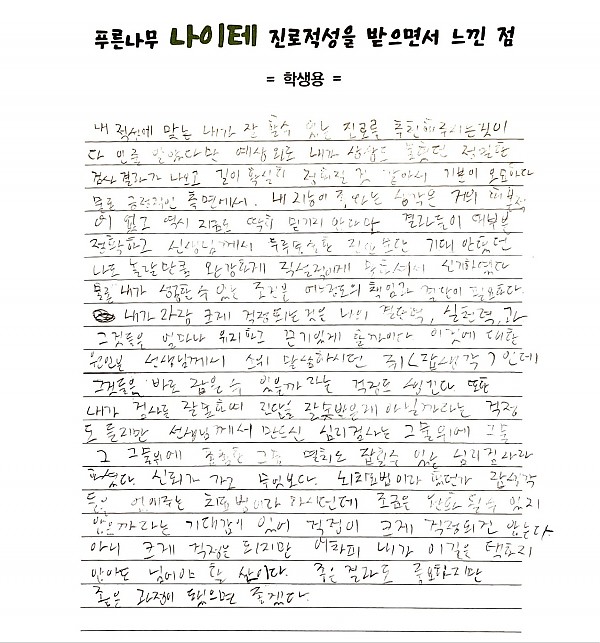 푸른나무 나이테 진로적성을 받으면서 느낀 점
= 학생용 =
내 적성에 맞는 내가 잘 할수 있는 진로를 추천해주시는것이
다 인줄 알았다만 예상 외로 내가 상상도 못했던 정밀한
검사결과가 나오고 길이 확실히 정해질 것 같아서 기분이 오묘하다
물론 긍정적인 측면에서. 내 지능이 좋다는 생각은 거의 해본적
이 없고 역시 지금도 딱히 믿기지 않다만 결과들이 대부분
정확하고 선생님께서 두루뭉실한 진단보단 기대 안했던
나도 놀랄만큼 완강하게 직설적이게 해주셔서 신기하였다
물론 내가 성공할 수 있는 조건은 어느정도의 책임과 결단이 필요하다.
내가 가장 크게 걱정되는것은 나의 결단력, 실천력, 과
그것들은 얼마나 유지하고 끈기있게 할까이다 이것에 대한
원인은 선생님께서 소위 말씀하시던 쥐<잡생각>인데
그것들을 바로 잡을 수 있을까 라는 걱정도 생긴다 또한
내가 검사를 잘못하여 진단을 잘못받은게 아닐까라는 걱정
도 들지만 선생님께서 만드신 심리검사는 그물위에 그물
그 그물위에 촘촘한 그물 멸치도 잡힐수 있는 심리검사라
하셨다. 신뢰가 가고 무엇보다. 뇌파요법이라 했던가 잡생각
들을 없애주는 치료법이라 하시던데 조금은 완화 될수 있지
않을까라는 기대감이 있어 걱정이 크게 걱정되진 않는다
아니 크게 걱정은 되지만 어차피 내가 이길을 택하지
않아도 넘어야 할 산이다. 좋은 결과도 중요하지만
좋은 과정이 됐으면 좋겠다.